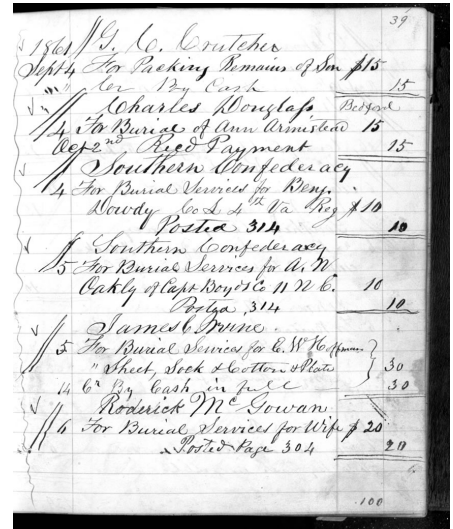 39
1861 G. C. Crutcher
Sept 4 For Packing Remains of Son $15
" " Cr By Cash 15
Charles Douglass Bedford
4 For Burial of Ann Armistead 15
Oct 2nd, Recd Payment 15
Southern Confederacy
4 For Burial Services for Benj.
Dowdy Co L 4th Va Reg $10
Posted 314 10
Southern Confederacy
5 For Burial Services for A. N
Oakly of Capt Boyds Co 11 N C. 10
Posted 314 10
James C Irvine.
5 For Burial Services for E. W. Hoffman
" Sheet, Sock & Cotton & Plate 30
14 Cr By Cash in full 30
Roderick McGowan
6 For Burial Services for Wife $20
Posted Page 304 20
100